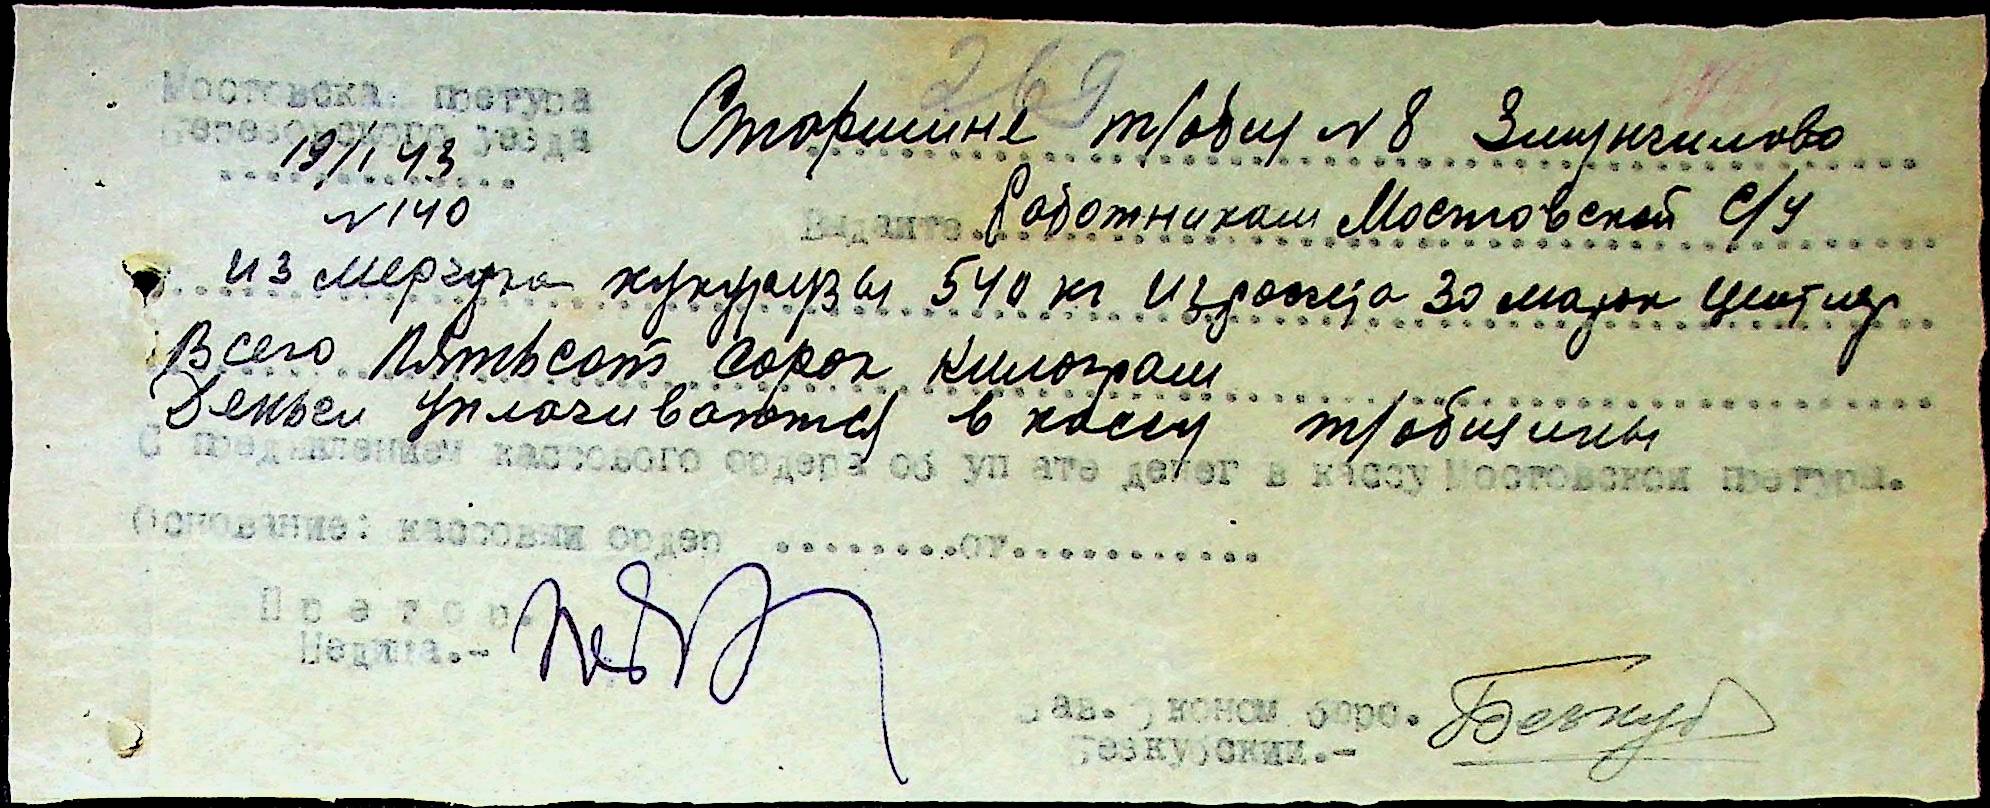 269
Мостовска претура
Березовского уезда
19/I 43
N 140
Старшине т/общ N 8
Выдайте Работникам Мостовской С/У
из мерчука кукурузы 540 кг из 30 марок
Всего Пятьсот сорок килограм
Деньги уплачиваются в кассу т/общины
С предявлением кассового ордера об уплате денег в кассу Мостовской претуры.
Основание: кассовый ордер ........от............
Претор.
Зав. Эконом бюро.